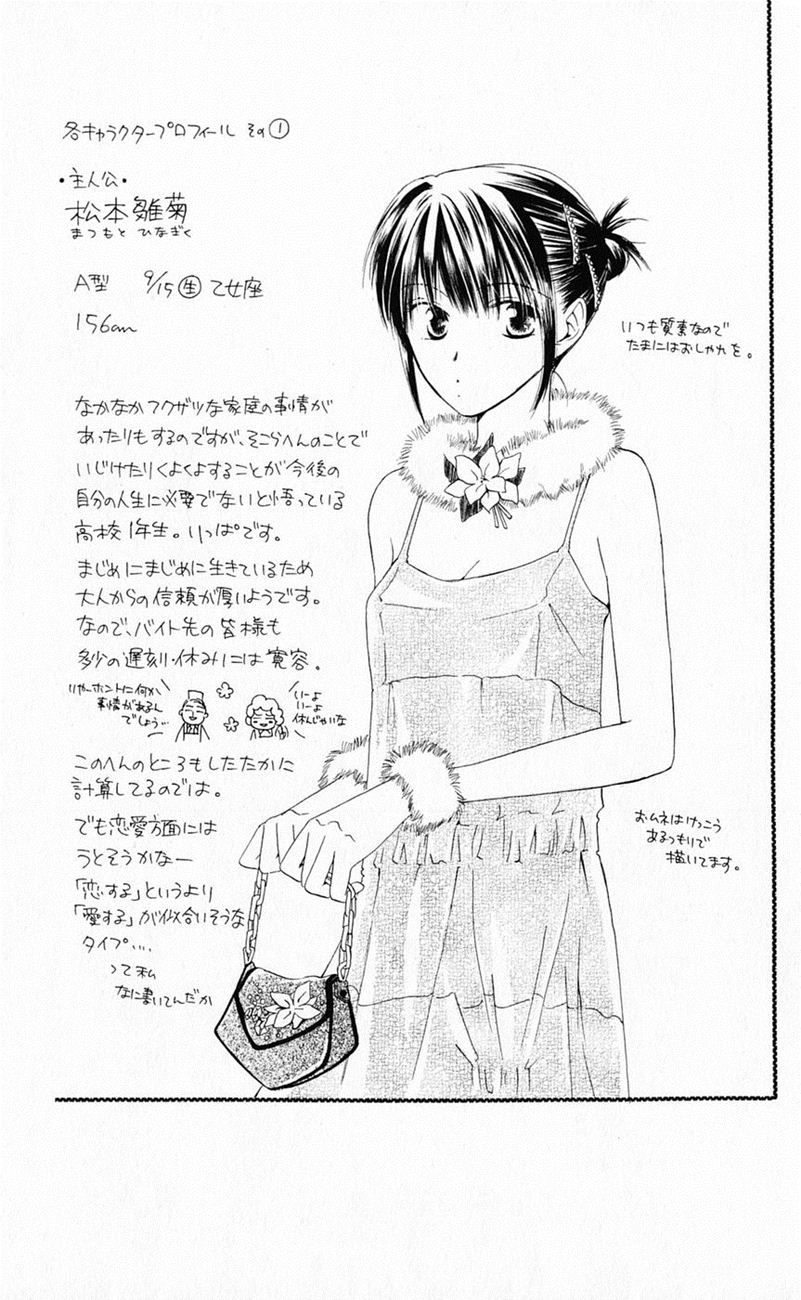 各キャラクタープロフィール その①
・主人公・
松本雛菊
まつもと ひなぎく
A型 9/15㊗生 乙女座
156cm
いつも質素なので
たまにはおしゃれを。
なかなかフクザツな家庭の事情が
あったりもするのですが、そこらへんのことで
いじけたりくよくよすることが今後の
自分の人生に必要でないと悟っている
高校1年生。りっぱです。
まじめにまじめに生きているため
大人からの信頼が厚いようです。
なので、バイト先の皆様も
多少の遅刻・休みには寛容。
いやーホントに何か
事情があるん
でしょう…
いーよ
いーよ
休んじゃいな
このへんのところもしたたかに
計算してるのでは。
でも恋愛方面には
うとそうかなー
「恋する」というより
「愛する」が似合いそうな
タイプ….
って私
なに書いてんだか
おムネはけっこう
あるつもりで
描いてます。